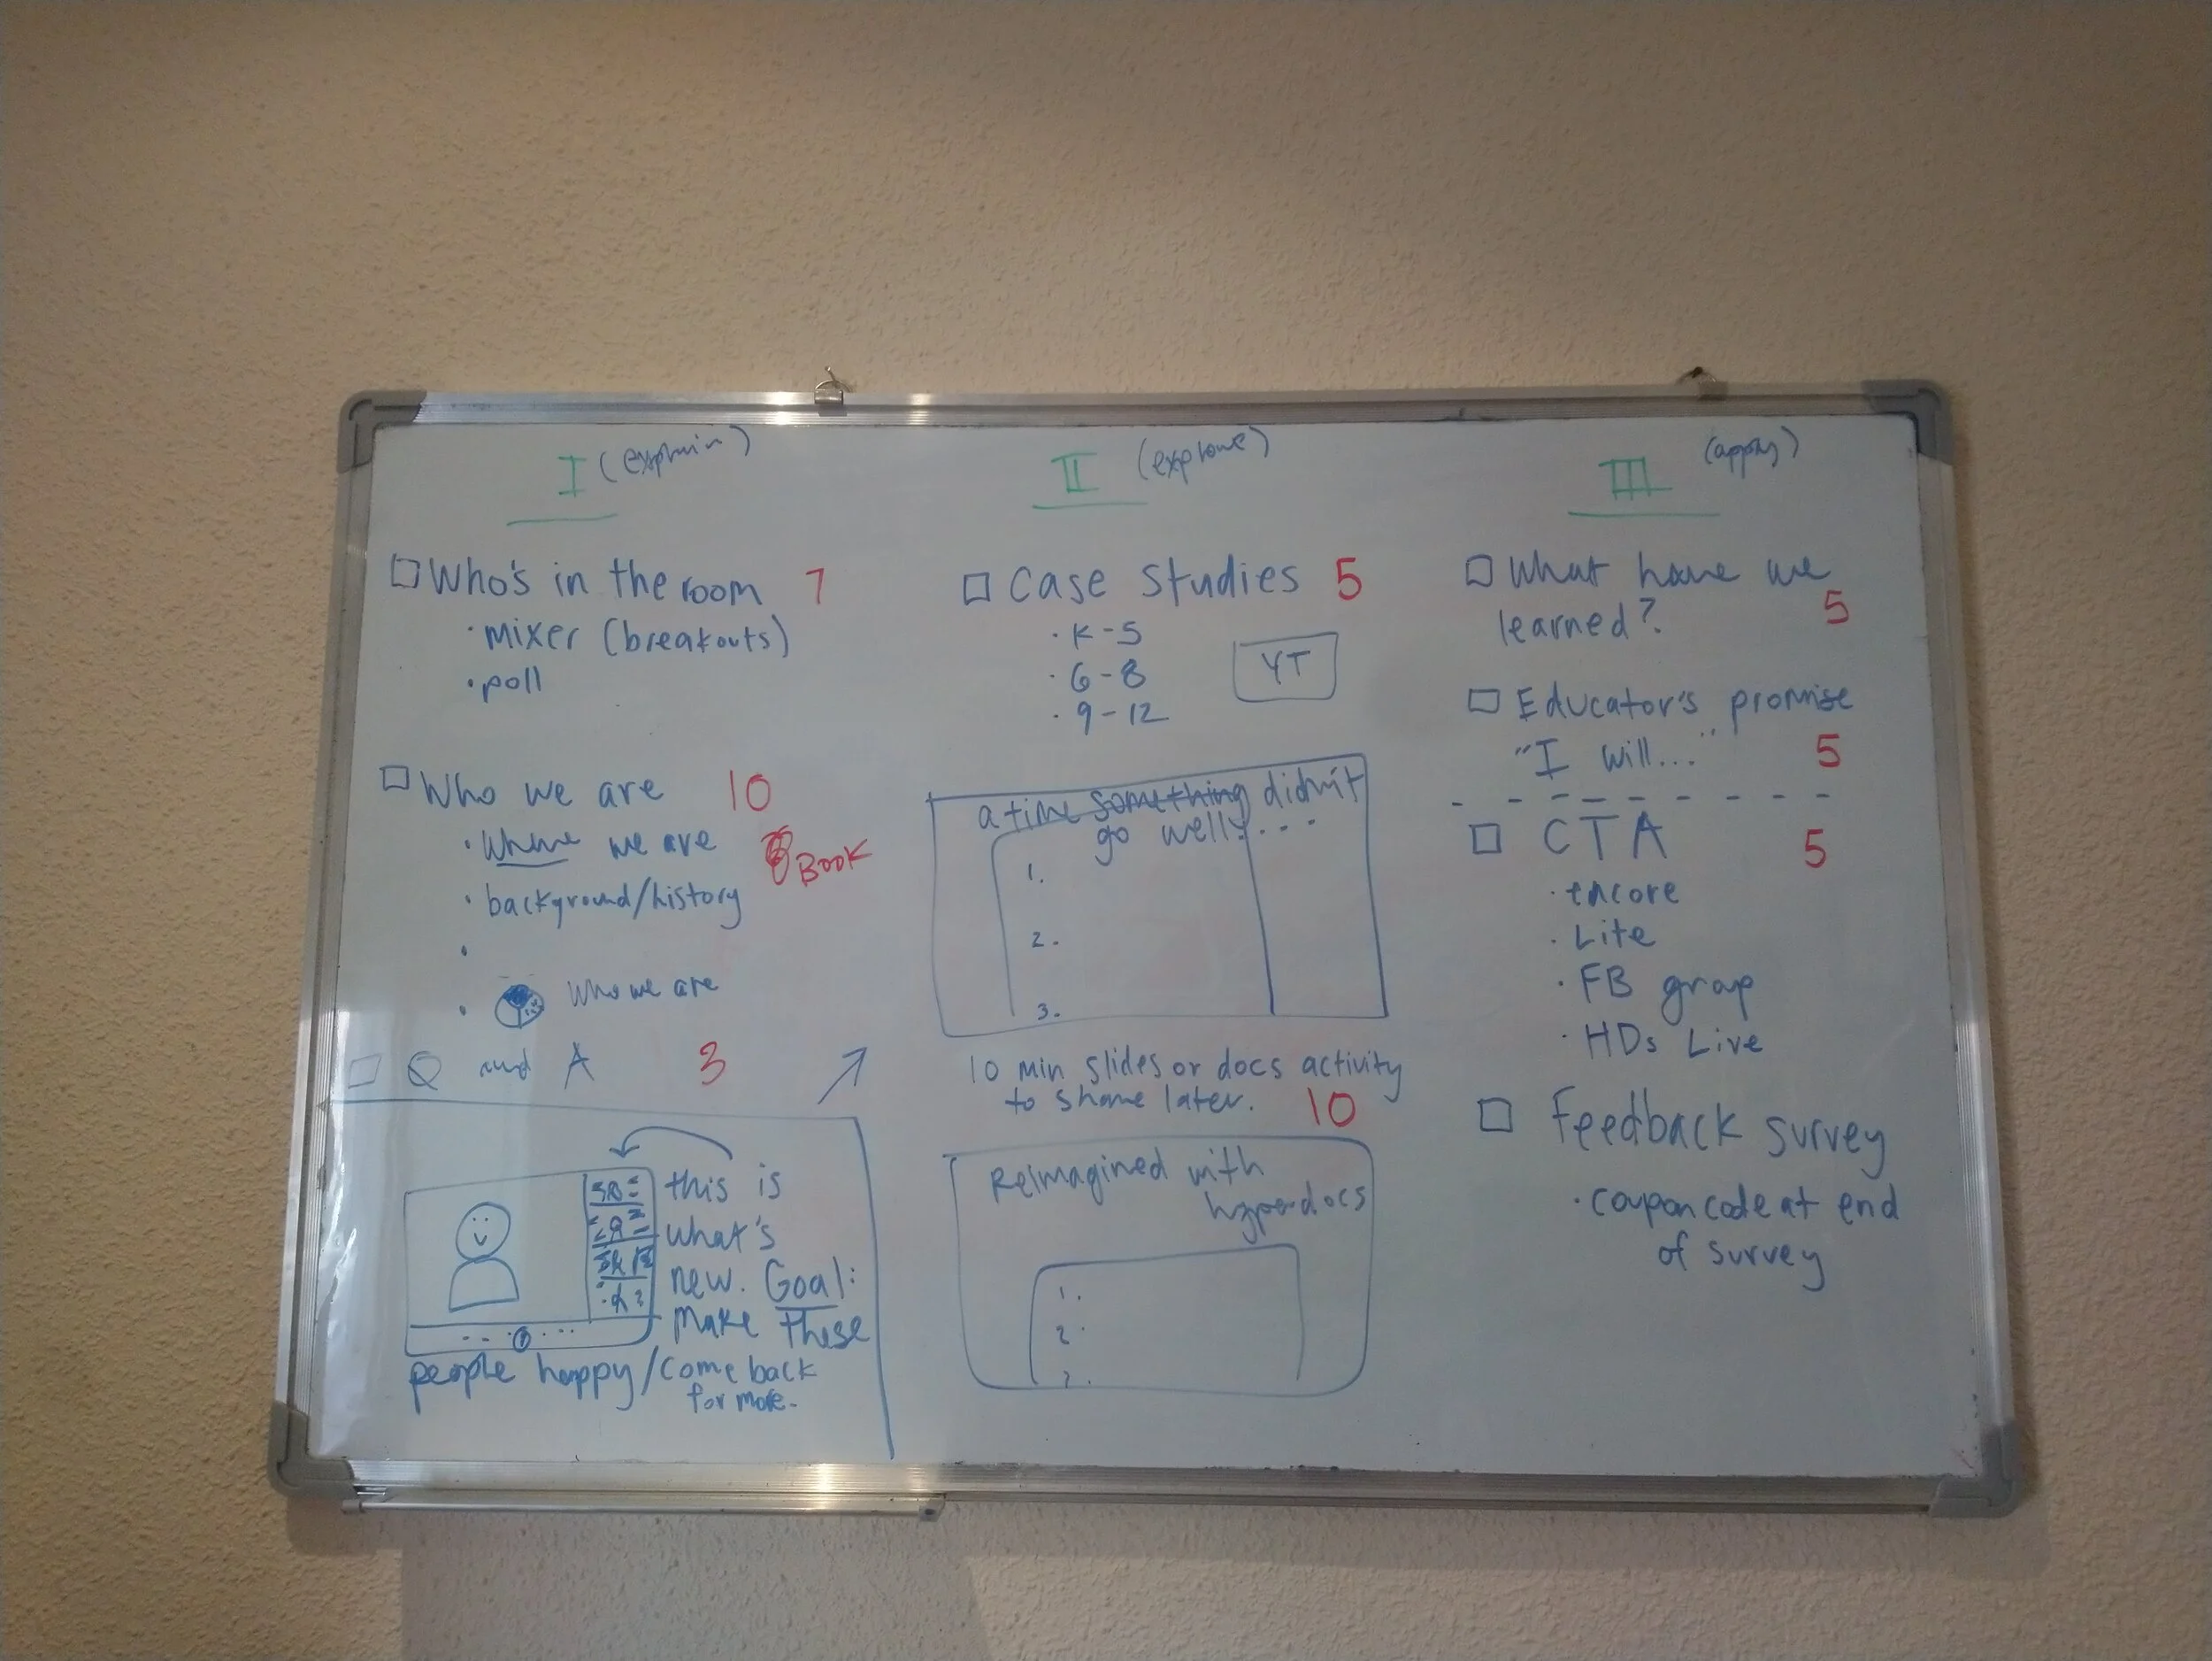 I (explain)
Who's in the room 7
· mixer (breakouts)
· poll
Who we are 10
· Where we are
Book
· background/history
·
· Who we are
Q and A 3
this is
what's
new. Goal:
Make these
people happy/come back
for more.
II (explore)
Case Studies 5
· K-5
· 6-8
· 9-12
YT
a time something didn't
go well...
1.
2.
3.
10 min slides or docs activity
to share later. 10
Reimagined with
hyperdocs
1.
2.
III (apply)
What have we
learned? 5
Educator's promise
"I will..." 5
CTA 5
· encore
· Lite
· FB group
· HDs Live
Feedback survey
· coupon code at end
of survey